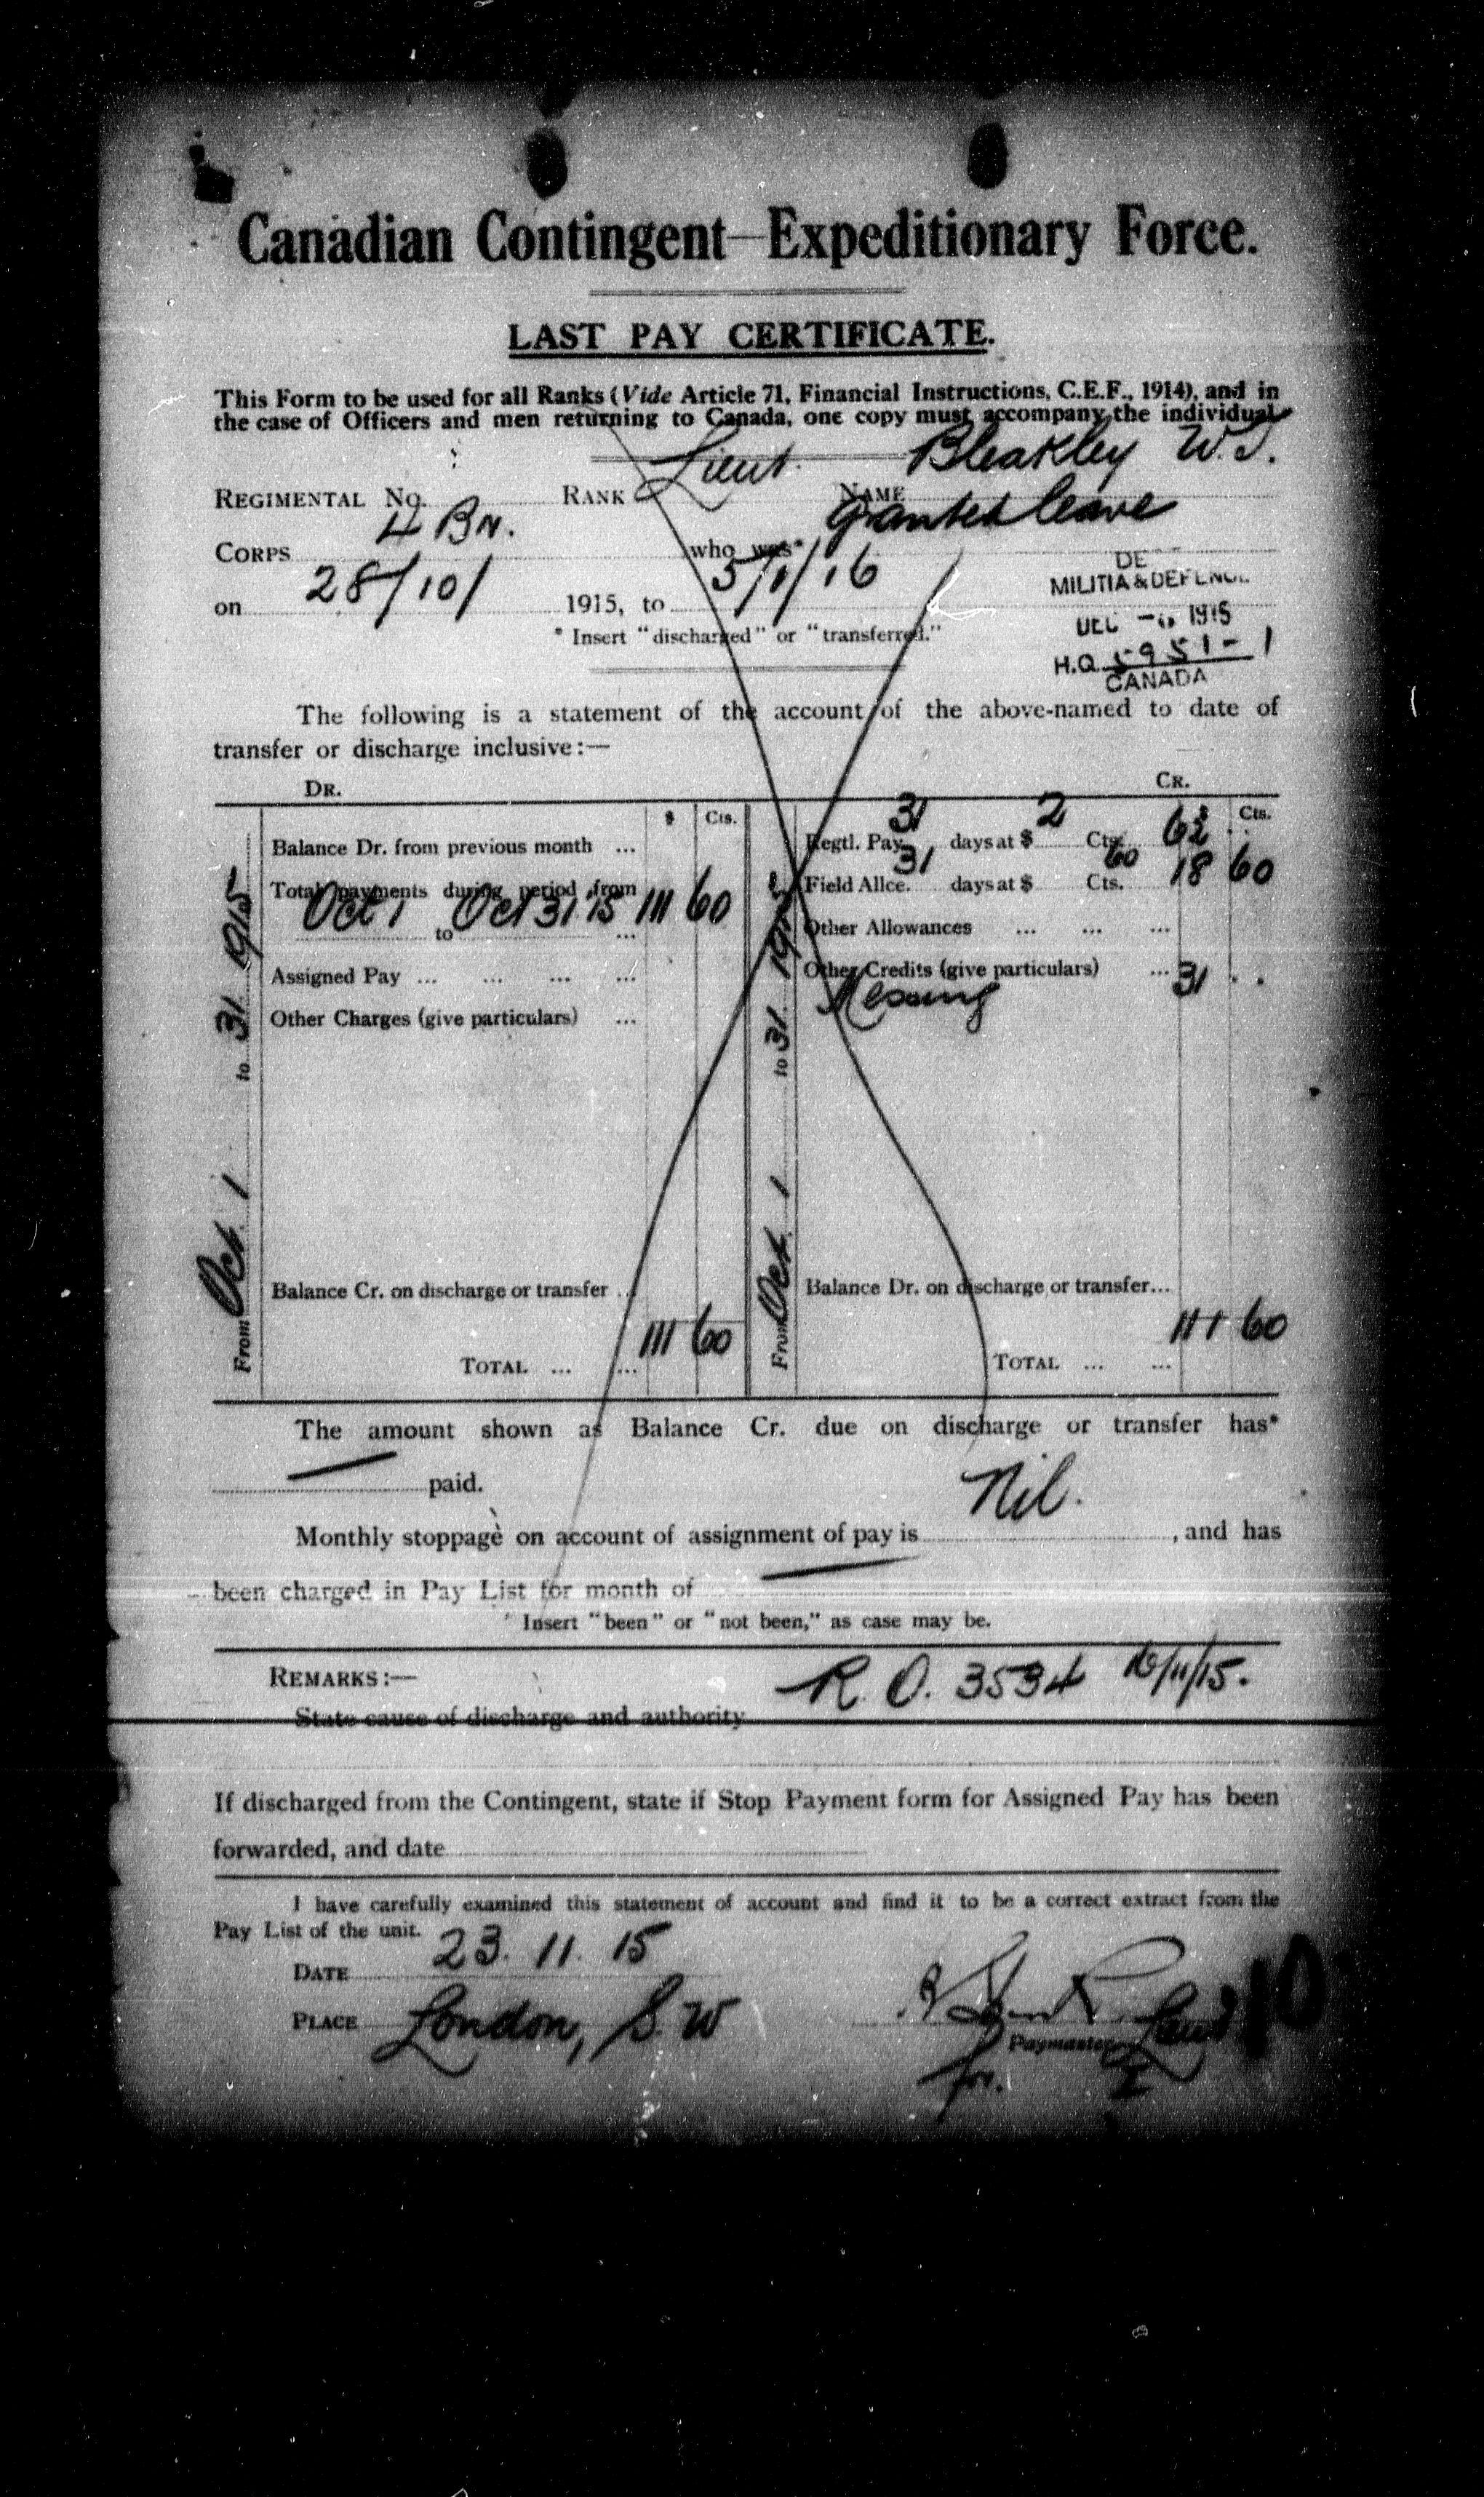 Canadian Contingent—Expeditionary Force.
LAST PAY CERTIFICATE.
This Form to be used for all Ranks (Vide Article 71, Financial Instructions, C.E.F., 1914), and in
the case of Officers and men returning to Canada, one copy must accompany the individual
REGIMENTAL No. RANK Lieut. NAME Bleakley W.J.
CORPS 4 Bn. who was* granted leave
on 28/10/ 1915, to 5/1/16
* Insert "discharged" or "transferred."
DE
MILITIA & DEFENCE
DEC 1915
H.Q. 5951-1
CANADA
The following is a statement of the account of the above-named to date of
transfer or discharge inclusive:—
DR. CR.
$ Cts.
Balance Dr. from previous month ...
Total payments during period from
Oct 1 to Oct 31 '15 ... 111 60
Assigned Pay ... ... ... ...
Other Charges (give particulars) ...
Balance Cr. on discharge or transfer ...
TOTAL ... ... 111 60
From Oct. 1 to 31. 1915
Cts.
Regtl. Pay 31 days at $ 2 Cts. 62 ..
Field Allce. 31 days at $ Cts. 60 18 60
Other Allowances ... ... ...
Other Credits (give particulars) ... 31 ..
Messing
Balance Dr. on discharge or transfer...
TOTAL ... ... 111 60
From Oct. 1 to 31. 1915
The amount shown as Balance Cr. due on discharge or transfer has*
— paid.
Monthly stoppage on account of assignment of pay is Nil. , and has
been charged in Pay List for month of —
* Insert "been" or "not been," as case may be.
REMARKS:— R.O. 3534 16/11/15.
State cause of discharge and authority
If discharged from the Contingent, state if Stop Payment form for Assigned Pay has been
forwarded, and date
I have carefully examined this statement of account and find it to be a correct extract from the
Pay List of the unit.
DATE 23. 11. 15
PLACE London, S.W
Paymaster
for.